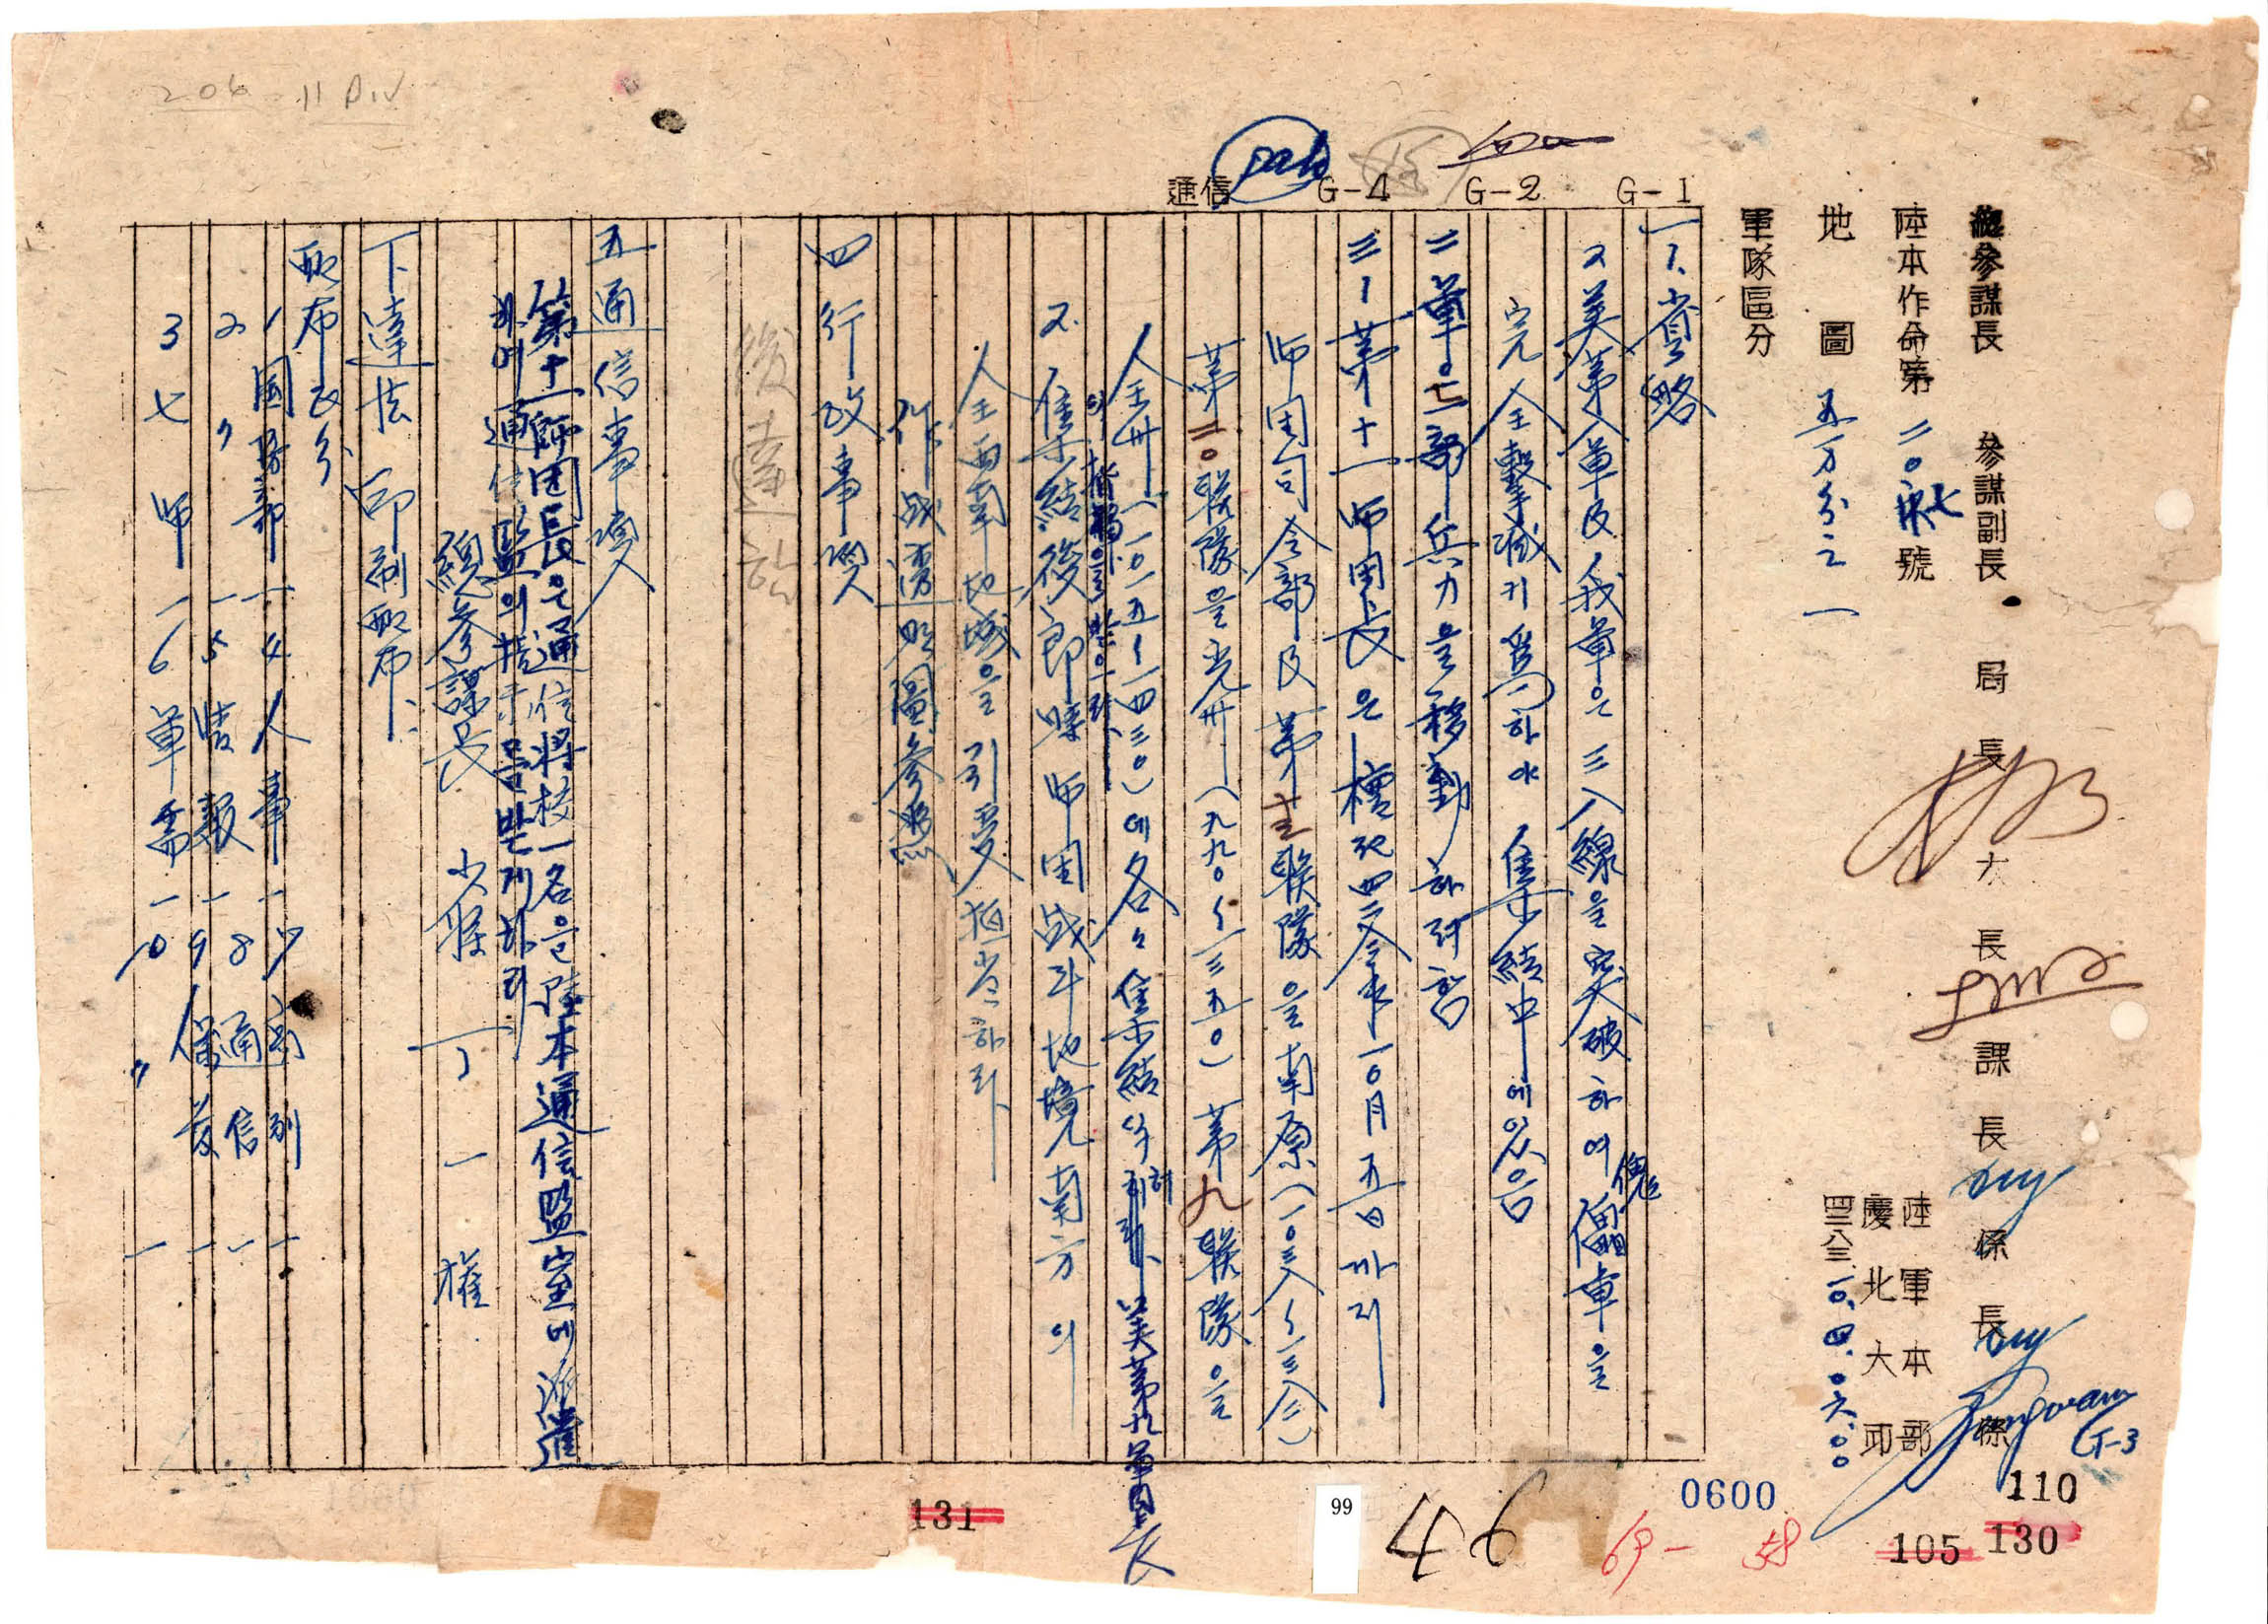 206 11 Div
總參謀長 參謀副長 局長 次長 課長 係長 係
G-3
陸本作命第二〇七號
陸軍本部
慶北大邱
四二八三.一〇.四.〇六:〇〇
地圖 五万分之一
軍隊區分
G-1
G-2
G-4
通信
一 1. 省略
2 美第八軍及我軍은 三八線을 突破하여 傀儡軍을
完全擊滅키 爲하야 集結中에 있음
二 軍은 一部兵力을 移動하려 함
三 1 第十一師団長은 檀紀四二八三年 一〇月 五日까지
師団司令部及 第十三聯隊을 南原(一〇三八~一三八三)
第二〇聯隊을 光州(九九〇~一三五〇) 第九聯隊을
全州(一〇一五~一四三〇)에 各々 集結식히라 美第九軍団長
의 指揮을 받으라
2. 集結後 即時 師団 战斗地境 南方의
全西南地域을 引受 担当하라
作战透明圖參照
四 行政事項
後達함
五 通信事項
第十一師団長은 通信將校一名을 陸本通信監室에 派遣
하여 通信監의 指示를 받게 하라
總參謀長 少将 丁一權
下達法 印刷配布
配布区分
1 國防部 一 4 人事 一 7 高別 一
2 〃 一 5 情報 一 8 通信 一
3 七師 一 6 軍需 一 9 儒義 一
10 〃 一
0600
110
130
105
69- 58
46
99
131